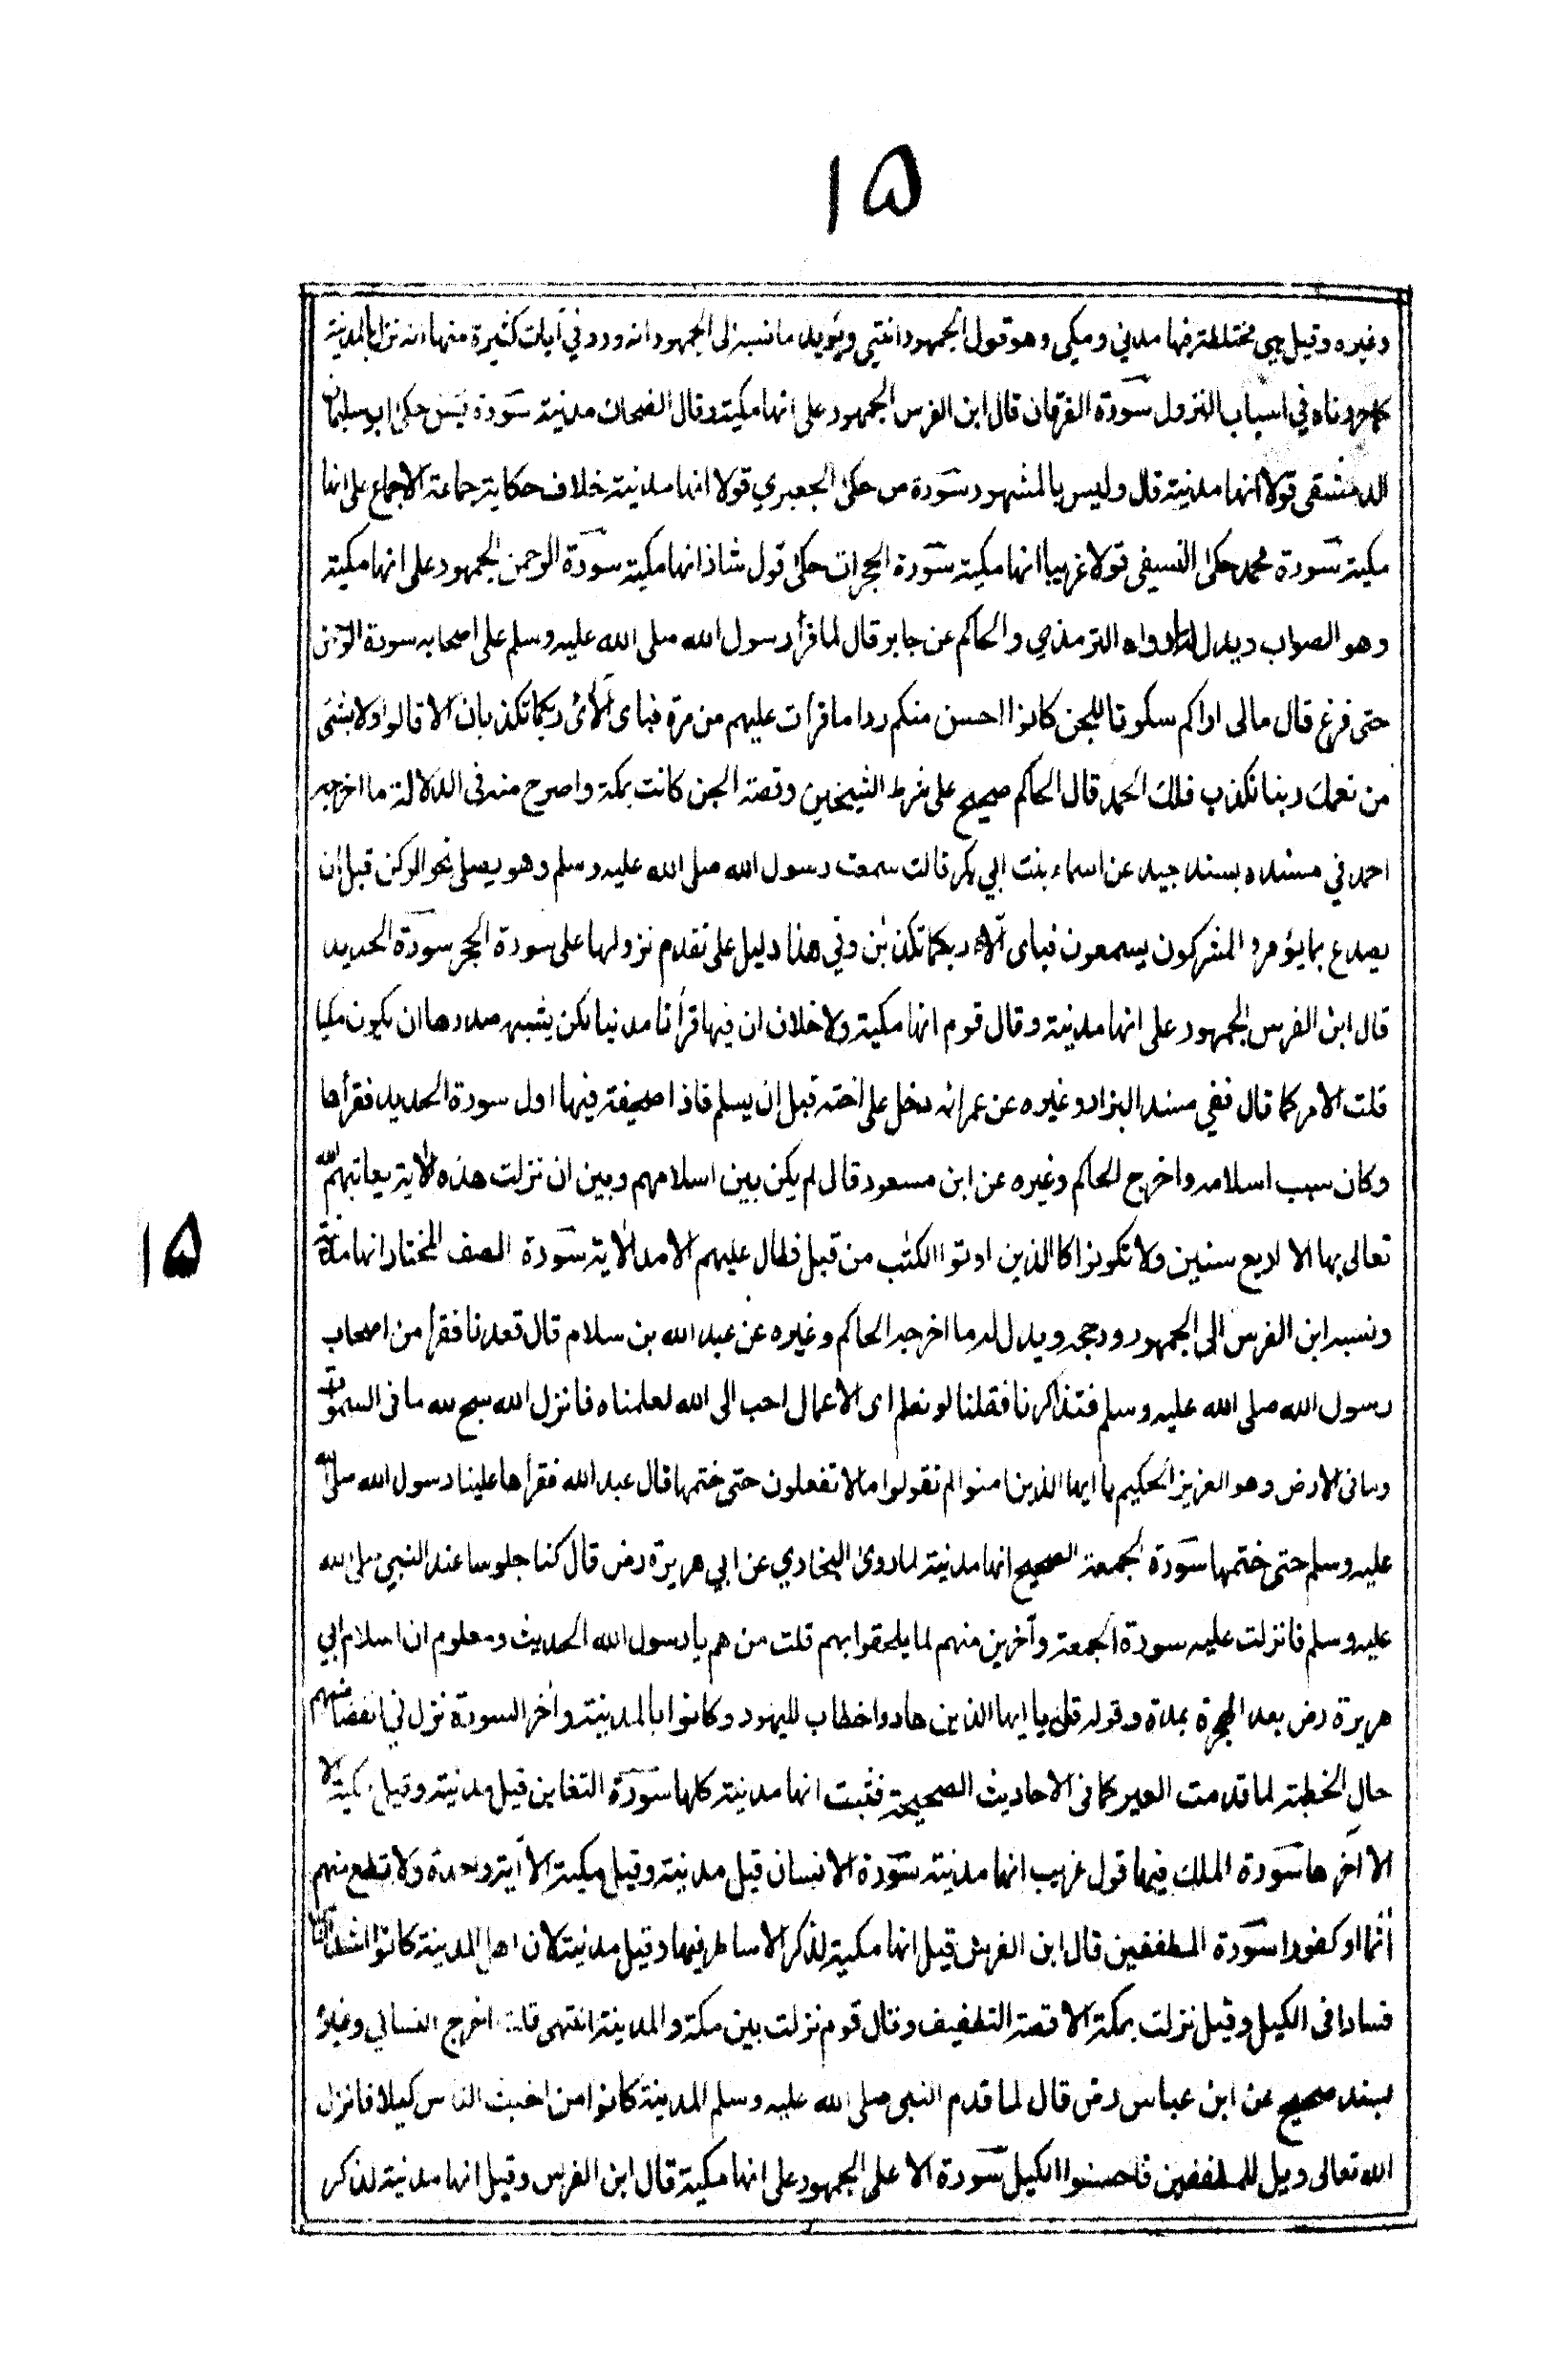 ١٥
وغيره وقيل هي مختلطة فيها مدني ومكي وهو قول الجمهور انتهي ويؤيد ما نسبه الى الجمهور انه ورد في آيات كثيرة منها انه نزل بالمدينة
كما حررناه في اسباب النزول سورة الفرقان قال ابن الفرس الجمهور على انها مكية وقال الضحاك مدنية سورة يس حكى ابو سليمان
الدمشقى قولا انها مدنية قال وليس بالمشهور سورة ص حكى الجعبري قولا انها مدنية خلاف حكاية جماعة الاجماع على انها
مكية سورة محمد حكى النسفى قولا غريبا انها مكية سورة الحجرات حكى قول شاذ انها مكية سورة الرحمن الجمهور على انها مكية
وهو الصواب ويدل له ما رواه الترمذي والحاكم عن جابر قال لما قرأ رسول الله صلى الله عليه وسلم على اصحابه سورة الرحمن
حتى فرغ قال مالى اراكم سكوتا للجن كانوا احسن منكم ردا ما قرأت عليهم من مرة فباى آلاء ربكما تكذبان الا قالوا ولا بشئ
من نعمك ربنا نكذب فلك الحمد قال الحاكم صحيح على شرط الشيخين وقصة الجن كانت بمكة واصرح منه فى الدلالة ما اخرجه
احمد في مسنده بسند جيد عن اسماء بنت ابي بكر قالت سمعت رسول الله صلى الله عليه وسلم وهو يصلى نحو الركن قبل ان
يصدع بما يؤمر والمشركون يسمعون فباى آلاء ربكما تكذبن وفي هذا دليل على تقدم نزولها على سورة الحجر سورة الحديد
قال ابن الفرس الجمهور على انها مدنية وقال قوم انها مكية ولا خلاف ان فيها قرأنا مدنيا لكن يشبه صدرها ان يكون مكيا
قلت الامر كما قال ففي مسند البزار وغيره عن عمر انه دخل على اخته قبل ان يسلم فاذا صحيفة فيها اول سورة الحديد فقرأها
وكان سبب اسلامه واخرج الحاكم وغيره عن ابن مسعود قال لم يكن بين اسلامهم وبين ان نزلت هذه الاية يعاتبهم الله
تعالى بها الا اربع سنين ولا تكونوا كالذين اوتوا الكتب من قبل فطال عليهم الامد الآية سورة الصف المختار انها مدنية
ونسبه ابن الفرس الى الجمهور ورجحه ويدل له ما اخرجه الحاكم وغيره عن عبد الله بن سلام قال قعدنا نفرا من اصحاب
رسول الله صلى الله عليه وسلم فتذاكرنا فقلنا لو نعلم اى الاعمال احب الى الله لعلمناه فانزل الله سبح لله ما فى السموت
وما فى الارض وهو العزيز الحكيم يا ايها الذين امنوا لم تقولوا مالا تفعلون حتى ختمها قال عبد الله فقرأها علينا رسول الله صلى الله
عليه وسلم حتى ختمها سورة الجمعة الصحيح انها مدنية لما روى البخاري عن ابي هريرة رض قال كنا جلوسا عند النبي صلى الله
عليه وسلم فانزلت عليه سورة الجمعة وآخرين منهم لما يلحقوا بهم قلت من هم يا رسول الله الحديث ومعلوم ان اسلام ابي
هريرة رض بعد الهجرة بمدة وقوله قل يا ايها الذين هادوا خطاب لليهود وكانوا بالمدينة وأخر السورة نزل في انفضاضهم
حال الخطبة لما قدمت العير كما فى الاحاديث الصحيحة فثبت انها مدنية كلها سورة التغابن قيل مدنية وقيل مكية الا
الا آخرها سورة الملك فيها قول غريب انها مدنية سورة الانسان قيل مدنية وقيل مكية الا آية واحدة ولا تطع منهم
أثما او كفورا سورة المطففين قال ابن الفرس قيل انها مكية لذكر الاساطير فيها وقيل مدنية لان اهل المدينة كانوا اشد الناس
فسادا فى الكيل وقيل نزلت بمكة الا قصة التطفيف وقال قوم نزلت بين مكة والمدينة انتهى قلت اخرج النسائي وغيره
بسند صحيح عن ابن عباس رض قال لما قدم النبى صلى الله عليه وسلم المدينة كانوا من اخبث الناس كيلا فانزل
الله تعالى ويل للمطففين فاحسنوا الكيل سورة الاعلى الجمهور على انها مكية قال ابن الفرس وقيل انها مدنية لذكر
١٥